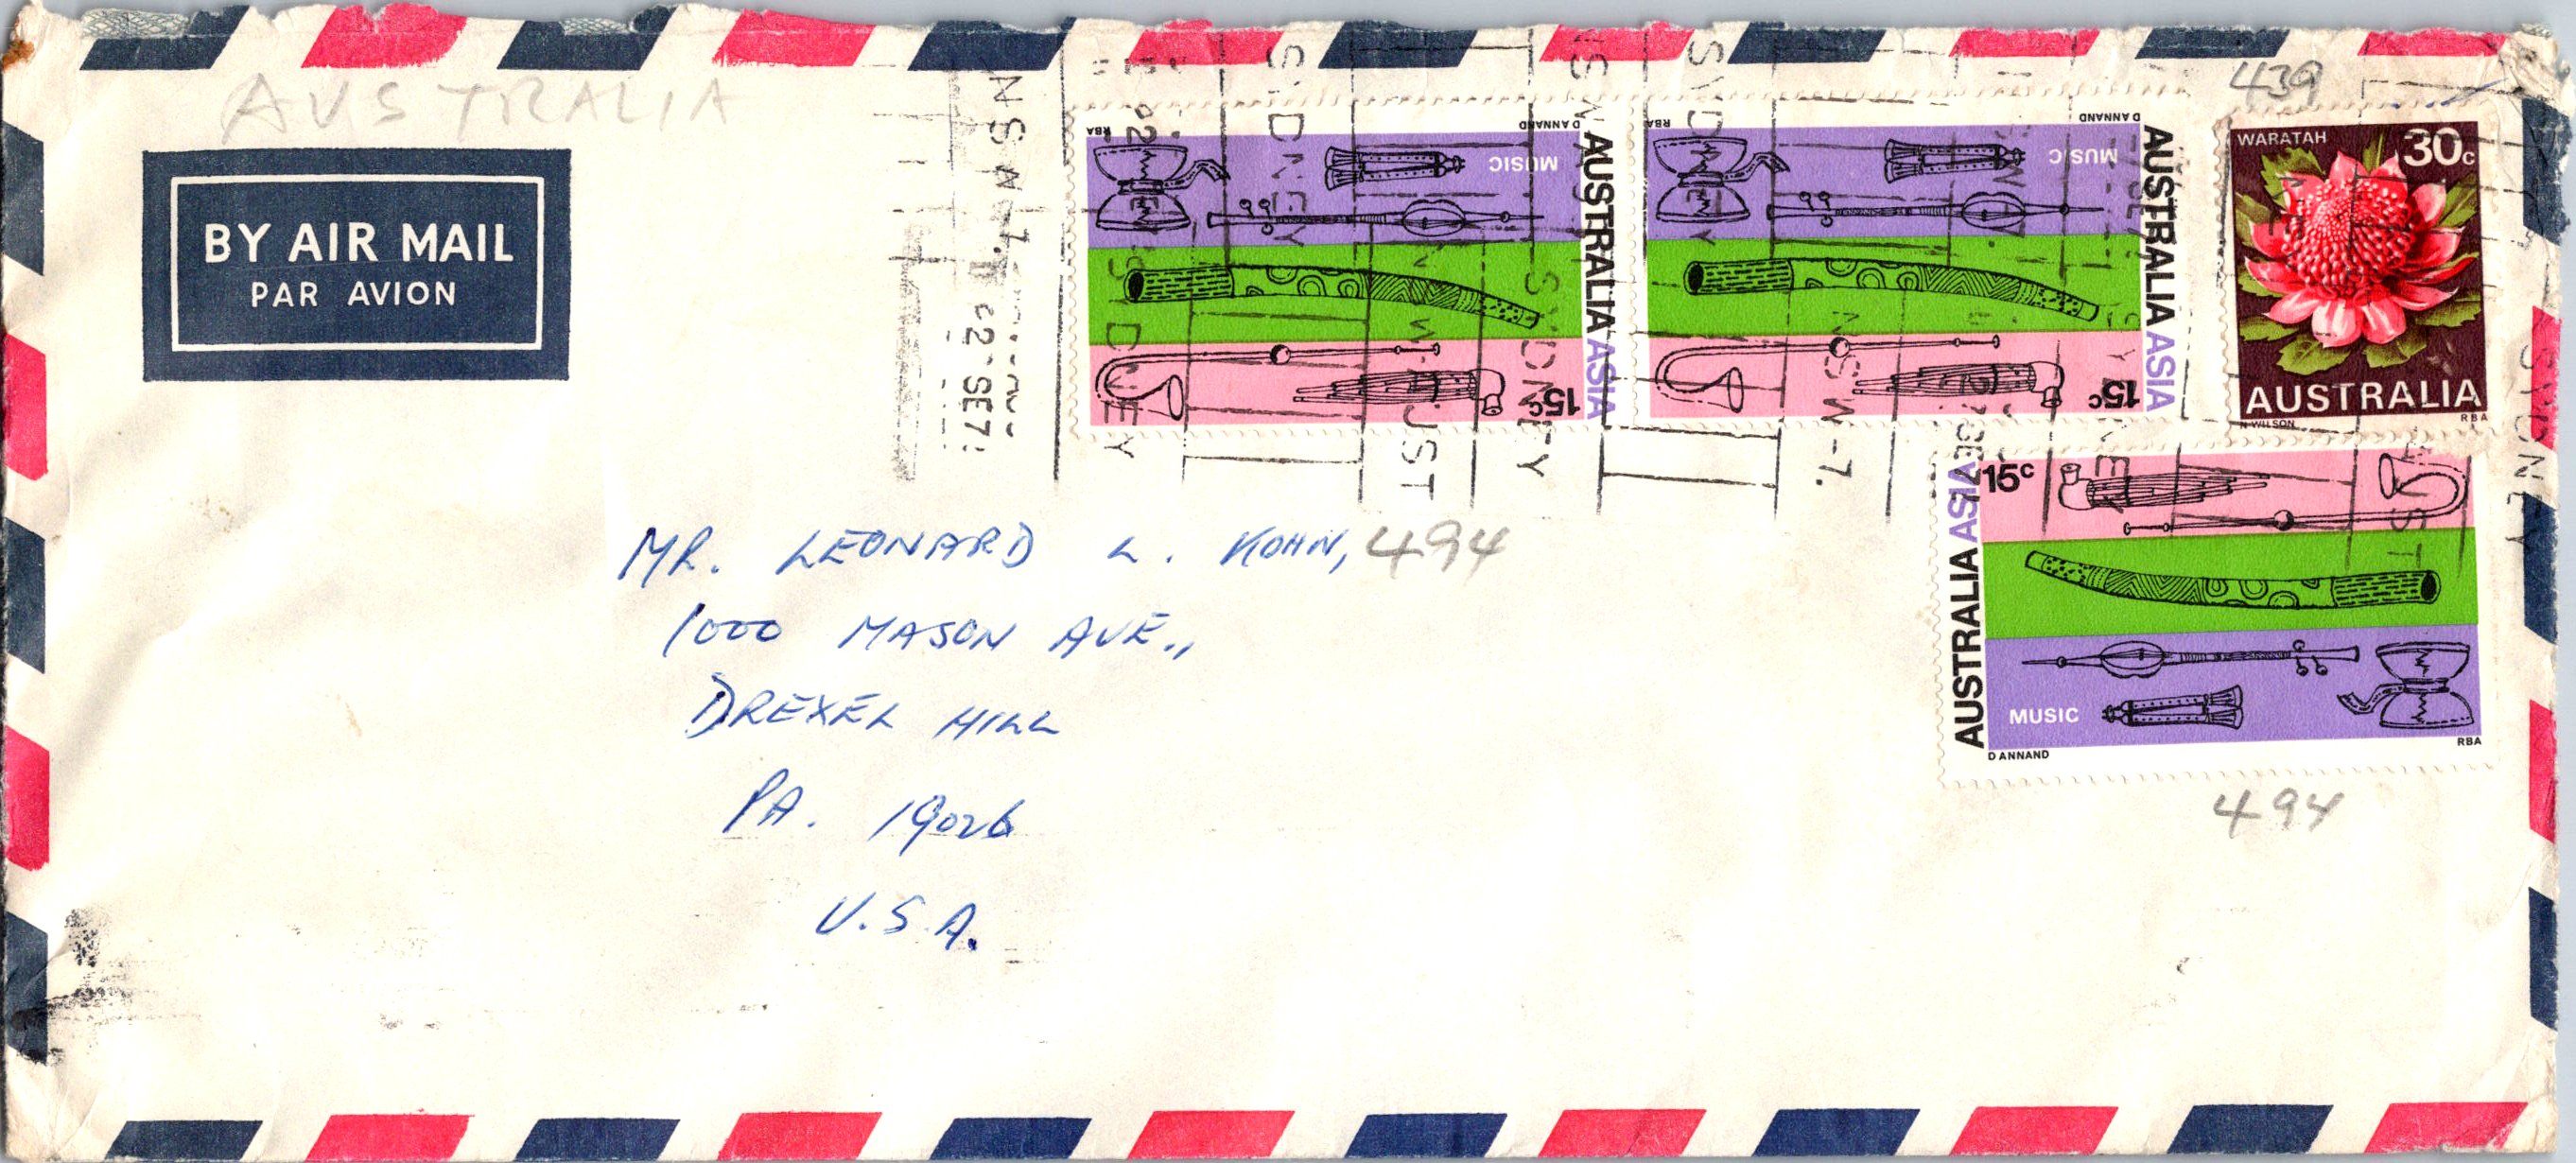 AUSTRALIA
BY AIR MAIL
PAR AVION
439
WARATAH 30c
AUSTRALIA
N WILSON RBA
D ANNAND RBA
MUSIC
AUSTRALIA ASIA
15c
D ANNAND RBA
MUSIC
AUSTRALIA ASIA
15c
15c
AUSTRALIA ASIA
MUSIC
D ANNAND RBA
SYDNEY
SYDNEY
SYDNEY
SYDNEY
NSW-7.
2 SE7
494
MR. LEONARD L. KOHN, 494
1000 MASON AVE.,
DREXEL HILL
PA. 19026
U.S.A.